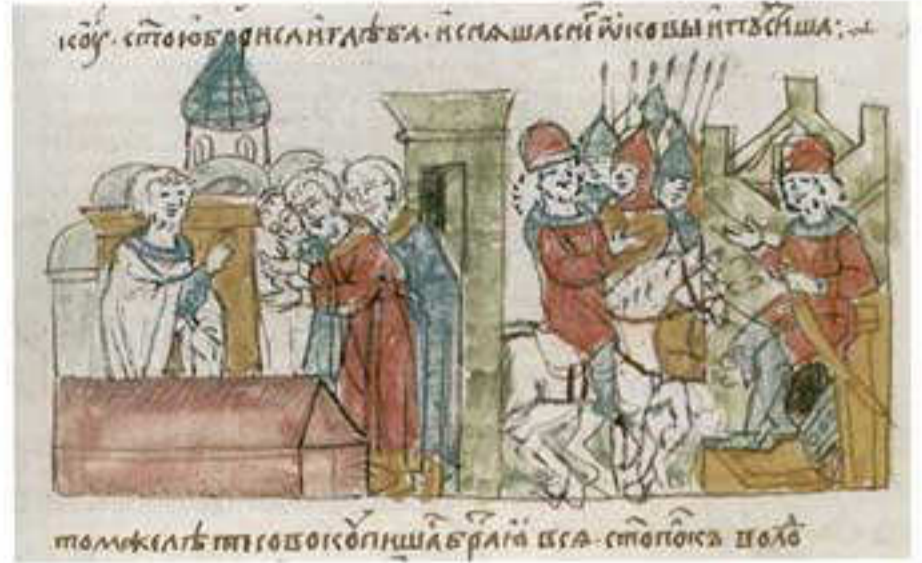 коу · стою бориса и глѣба · и снѧша с ни ѡковы и пꙋсиша :~
том же лѣт совокꙋпиша браю всѧ · стопокъ воло